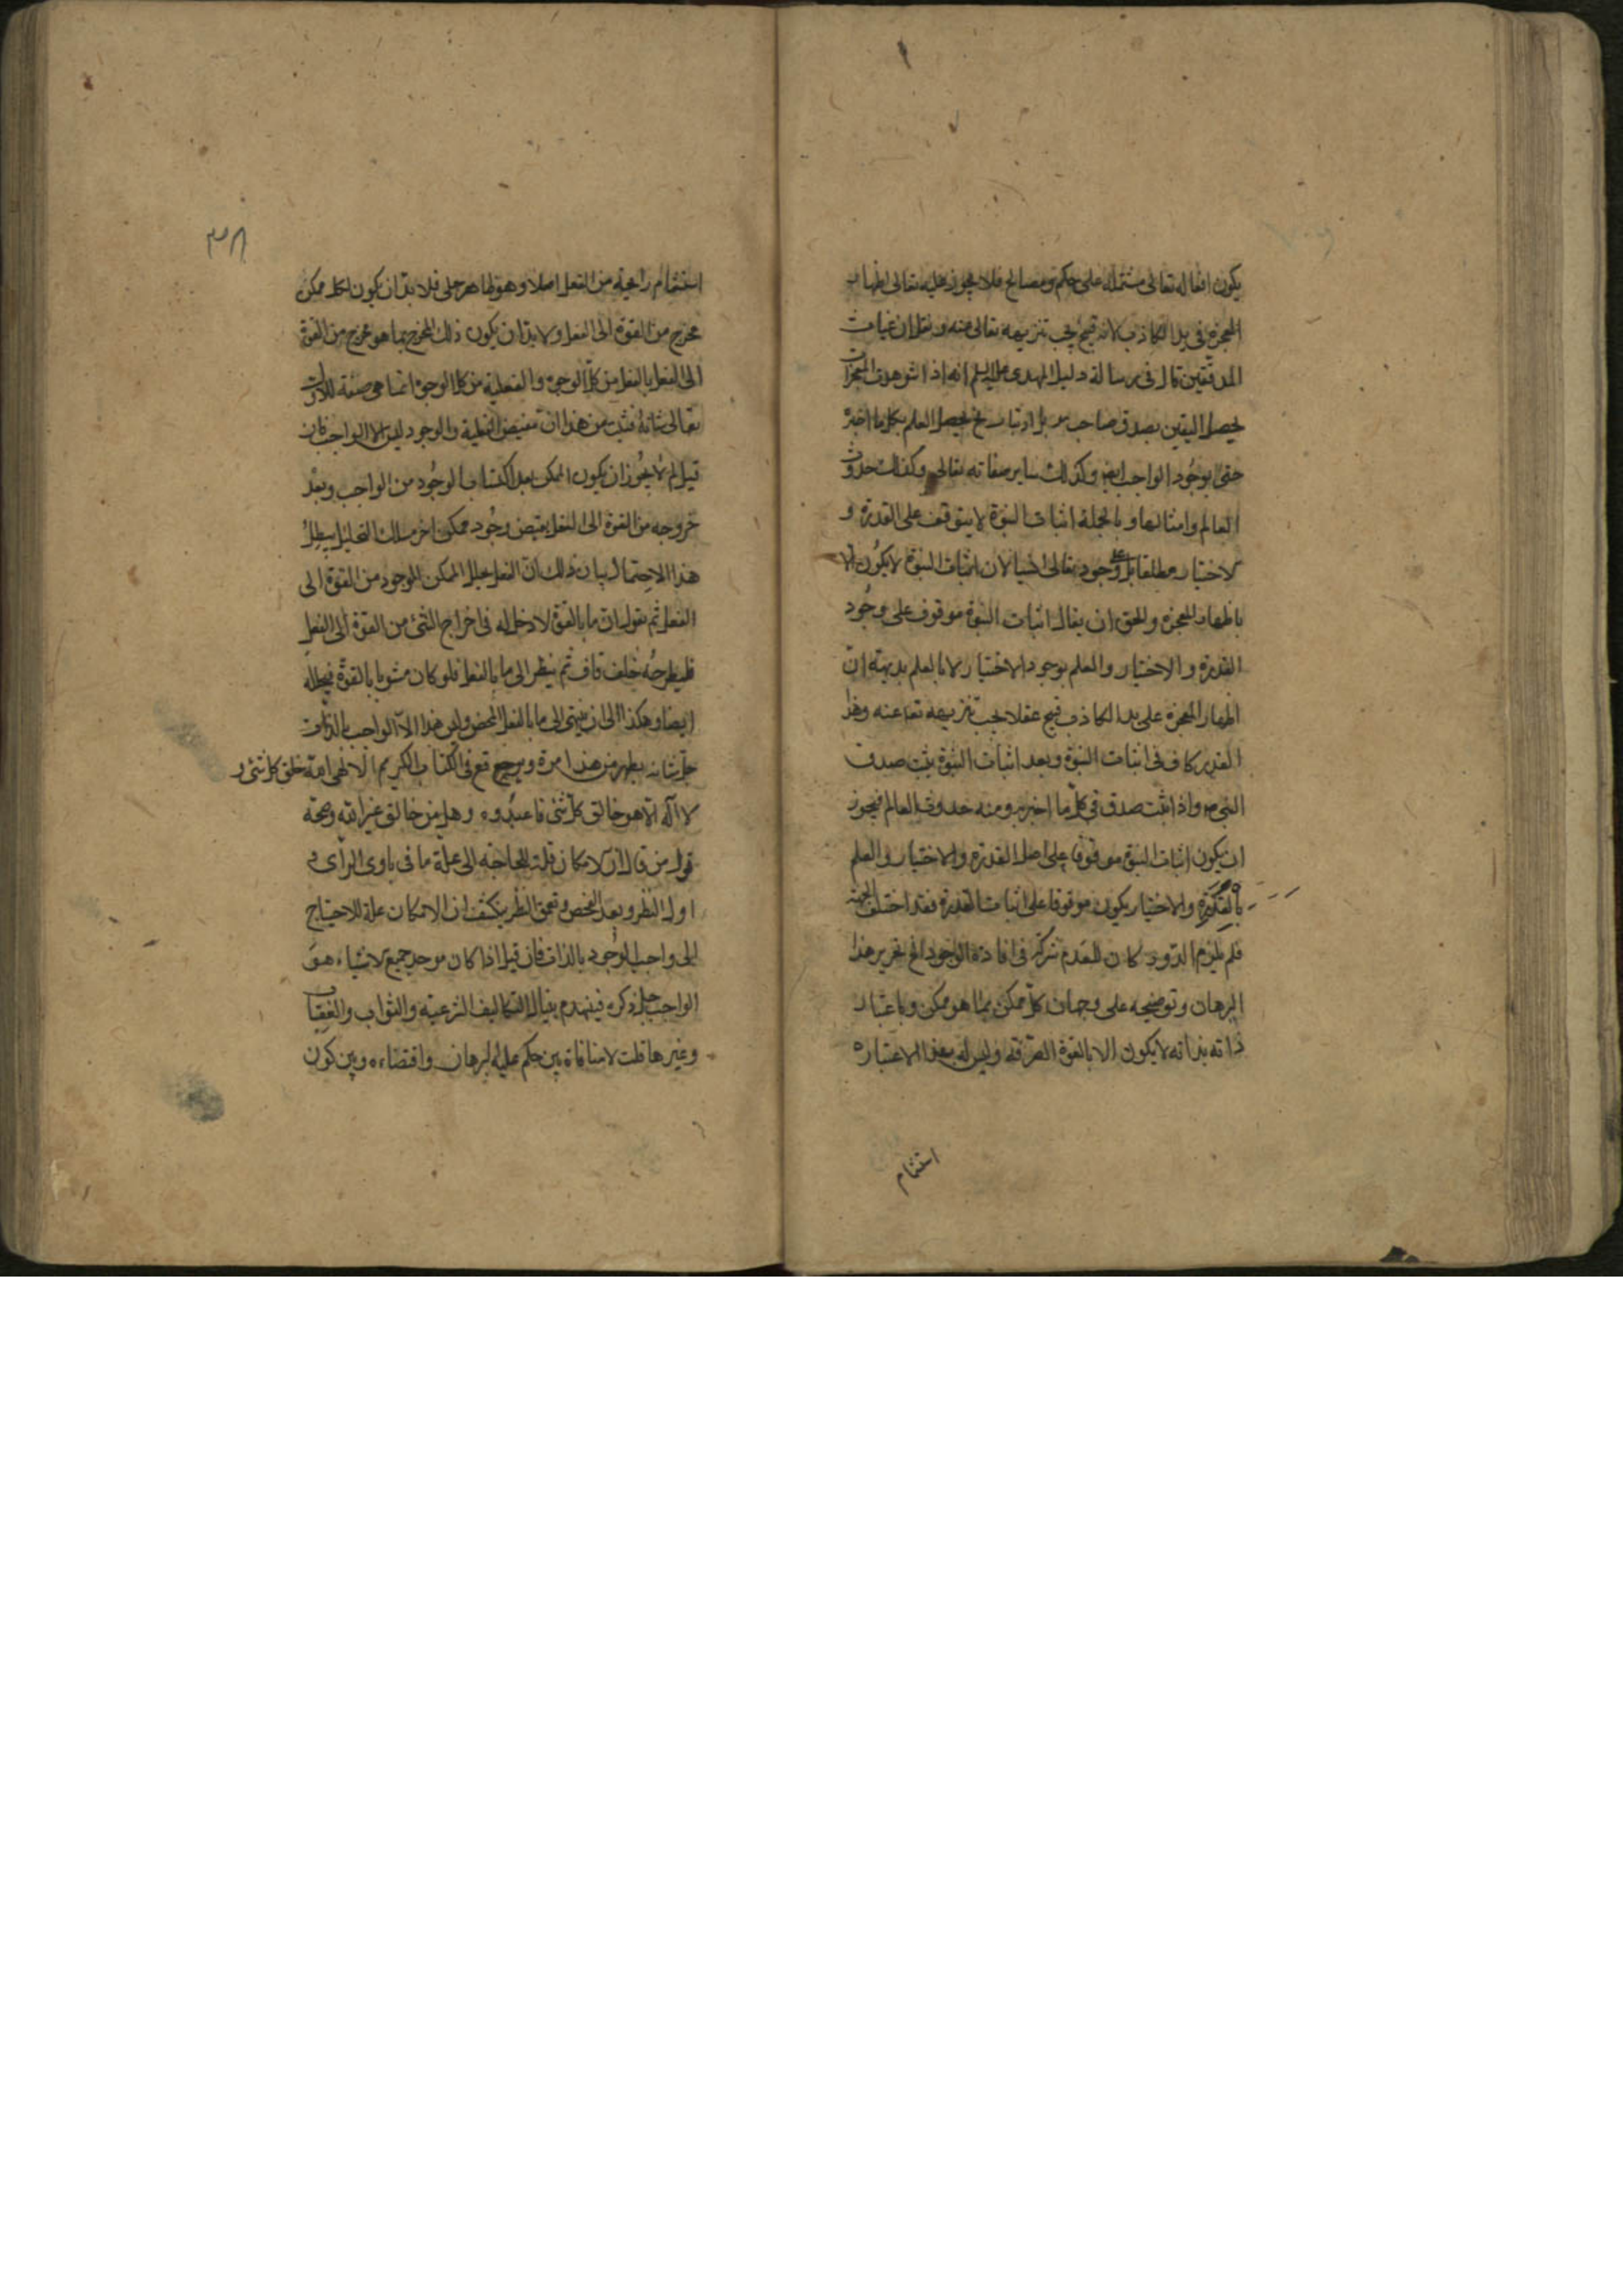 يكون افعاله تعالى مشتملة على حكم ومصالح فلا يجوز عليه تعالى اظهار
المعجزة فى يد الكاذب لانه قبيح يجب تنزيهه تعالى عنه ونقل ان غياث
المدققين قال فى رسالة دليل الهدى انه اذا شوهدت المعجزات
يحصل اليقين بصدق صاحب بلا ارتياب ثم يحصل العلم بكل ما اخبر
حتى بوجود الواجب ايضا وكذلك ساير صفاته تعالى وكذلك حدوث
العالم وامثالها وبالجملة اثبات النبوة لا يتوقف على القدرة و
لاختيار مطلقا بل وجوده تعالى لان اثبات النبوة لا يكون الا
باظهار المعجزة والحق ان يقال اثبات النبوة موقوف على وجود
القدرة والاختيار والعلم بوجود الاختيار لا بالعلم بديهة ان
اظهار المعجزة على يد الكاذب قبيح عقلا يجب تنزيهه تعا عنه وهذا
القدر كاف فى اثبات النبوة وبعد اثبات النبوة يثبت صدق
النبى واذا ثبت صدق فى كل ما اخبر به ومنه حدوث العالم فيجوز
ان يكون اثبات النبوة موقوفا على اصل القدرة والاختيار والعلم
بالقدرة والاختيار يكون موقوفا على اثبات القدرة فقد اختلف الجهة
فلم يلزم الدور كان للعدم شركة فى افادة الوجود الخ تحرير هذا
البرهان وتوضيحه على وجهان كل ممكن بما هو ممكن وباعتبار
ذاته بذاته لا يكون الا بالقوة الصرفة وليس له بهذا الاعتبار
استشمام
٣٨
استشمام رايحة من الفعل اصلا وهو ظاهر جلى فلا بد ان يكون لكل ممكن
مخرج من القوة الى الفعل ولا بد ان يكون ذلك المخرج بما هو مخرج من القوة
الى الفعل بالفعل من كل الوجوه والفعلية من كل الوجوه انما هى صفة للاول
تعالى شانه فثبت من هذا ان مفيض الفعلية والوجود ليس الا الواجب فان
قيل لم لا يجوز ان يكون الممكن بعد اكتساب الوجود من الواجب وبعد
خروجه من القوة الى الفعل يفيض وجود ممكن اخر مسلك التحليل يبطل
هذا الاحتمال بيان ذلك ان العقل يحلل الممكن الموجود من القوة الى
الفعل ثم نقول ان ما بالقوة لا دخل له فى اخراج الشئ من القوة الى الفعل
فليطرحه خلف قاف ثم ينظر الى ما بالفعل فلو كان مشوبا بالقوة فيحلله
ايضا وهكذا الى ان ينتهى الى ما بالفعل المحض وليس هذا الا الواجب بالذات
جل شانه يظهر من هذا امره وقع فى الكتاب الكريم الالهى الله خلق كل شئ و
لا اله الا هو خالق كل شئ فاعبدوه وهل من خالق غير الله وصحة
قول من قال ان لامكان قلة للحاجة الى علة ما فى بادى الراى و
اول النظر وبعد الفحص وتعمق النظر ينكشف ان الامكان علة للاحتياج
الى واجب الوجود بالذات فان قيل اذا كان موجد جميع لاشياء هو
الواجب جل ذكره فينهدم بنيان التكاليف الشرعية والثواب والعقاب
وغيرها قلت لا منافاة بين حكم عليه البرهان واقتضاءه وبين كون